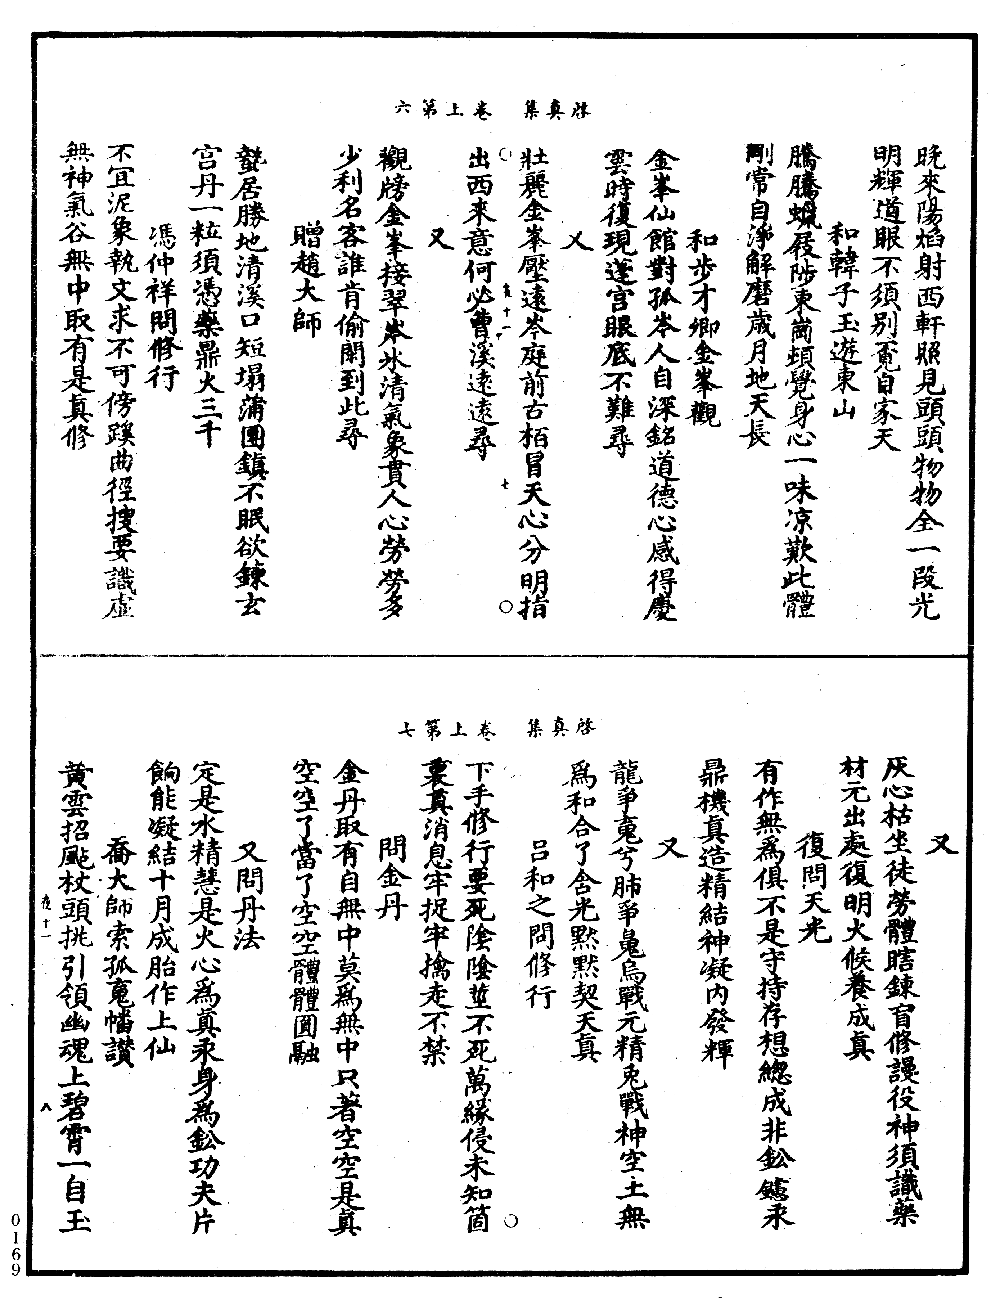 啓真集　卷上第六
晚來陽焰射西軒照見頭頭物物全一段光
明輝道眼不須別覔自家天
和韓子玉遊東山
騰騰蠟屐陟東崗頓覺身心一味凉歎此體
剛常自淨解磨歲月地天長
和步才卿金峯觀
金峯仙館對孤岑人自深銘道德心感得慶
雲時復現蓬宫眼底不難尋
又
壯麗金峯壓遠岑庭前古栢冐天心分明指
出西來意何必曹溪遠遠尋
又
觀牓金峯接翠岑氷清氣象貫人心勞勞多
少利名客誰肯偷閑到此尋
贈趙大師
甃居勝地清溪口短塌蒲團鎮不眠欲鍊玄
宫丹一粒須憑藥鼎火三千
馮仲祥問修行
不宜泥象執文求不可傍蹊曲徑搜要識虛
無神氣谷無中取有是真修
啓真集　卷上第七
又
灰心枯坐徒勞體瞎鍊盲修謾役神須識藥
材元出處復明火候養成真
復問天光
有作無爲俱不是守持存想總成非鈆爐汞
鼎機真造精結神凝内發輝
又
龍爭䰟兮肺爭鬼烏戰元精兎戰神空土無
爲和合了含光默默契天真
吕和之問修行
下手修行要死隂隂莖不死萬緣侵未知箇
裏真消息牢捉牢擒走不禁
問金丹
金丹取有自無中莫爲無中只著空空是真
空空了當了空空體體圎融
又問丹法
定是水精慧是火心爲真汞身爲鈆功夫片
餉能凝結十月成胎作上仙
喬大師索孤䰟幡讚
黄雲招颭杖頭挑引領幽魂上碧霄一自玉
0169